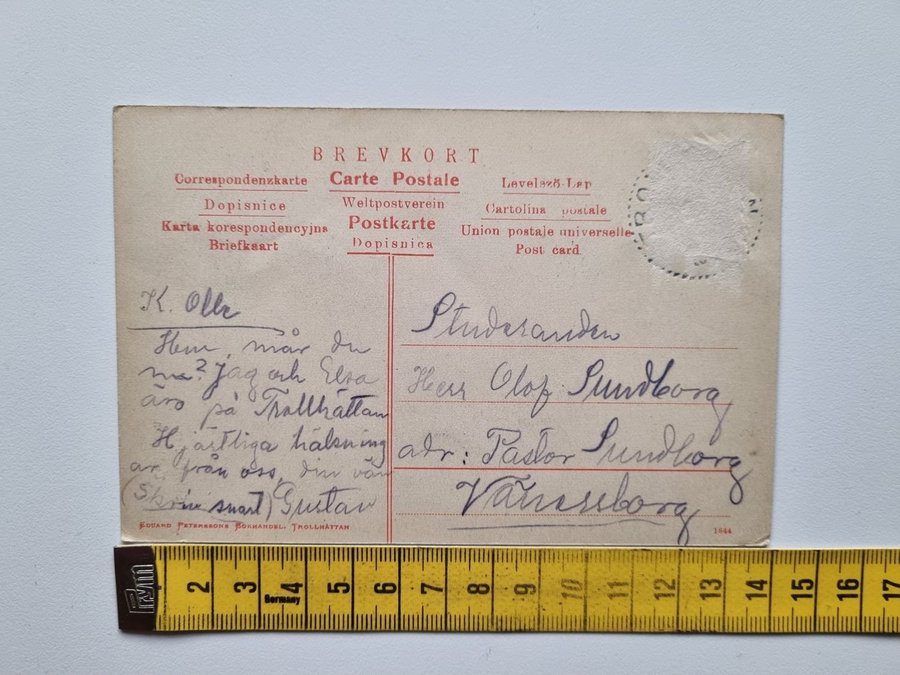 BREVKORT
Correspondenzkarte
Carte Postale
Levelező-Lap
Dopisnice
Weltpostverein
Cartolina postale
Karta korespondencyjna
Postkarte
Union postale universelle
Briefkaart
Dopisnica
Post card
K. Olle
Hem mår du
na? Jag och Elsa
äro på Trollhättan
Hjärtliga hälsning
ar från oss, din vän
(Skriv snart) Gustav
EDUARD PETERSSONS BOKHANDEL, TROLLHÄTTAN
Studeranden
Herr Olof Sundborg
adr: Pastor Sundborg
Vänersborg
1844
2 3 4 5 6 7 8 9 10 11 12 13 14 15 16 17
Germany